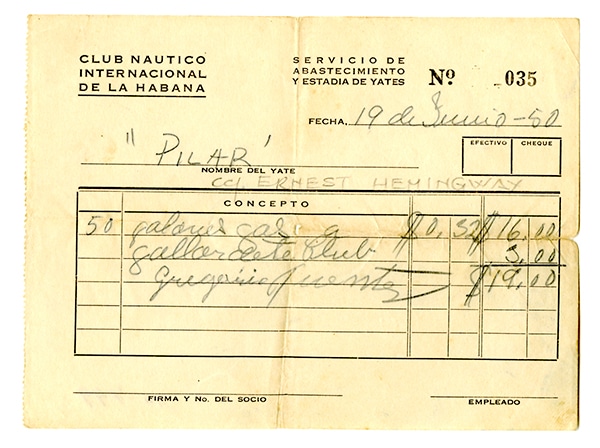 CLUB NAUTICO
INTERNACIONAL
DE LA HABANA
SERVICIO DE
ABASTECIMIENTO
Y ESTADIA DE YATES
Nº 035
FECHA, 19 de Junio-50
EFECTIVO CHEQUE
"PILAR"
NOMBRE DEL YATE
CC/. ERNEST HEMINGWAY
CONCEPTO
50 galones gas a $0.32 $16.00
gallardete Club 3.00
Gregorio Fuentes $19.00
FIRMA Y No. DEL SOCIO
EMPLEADO